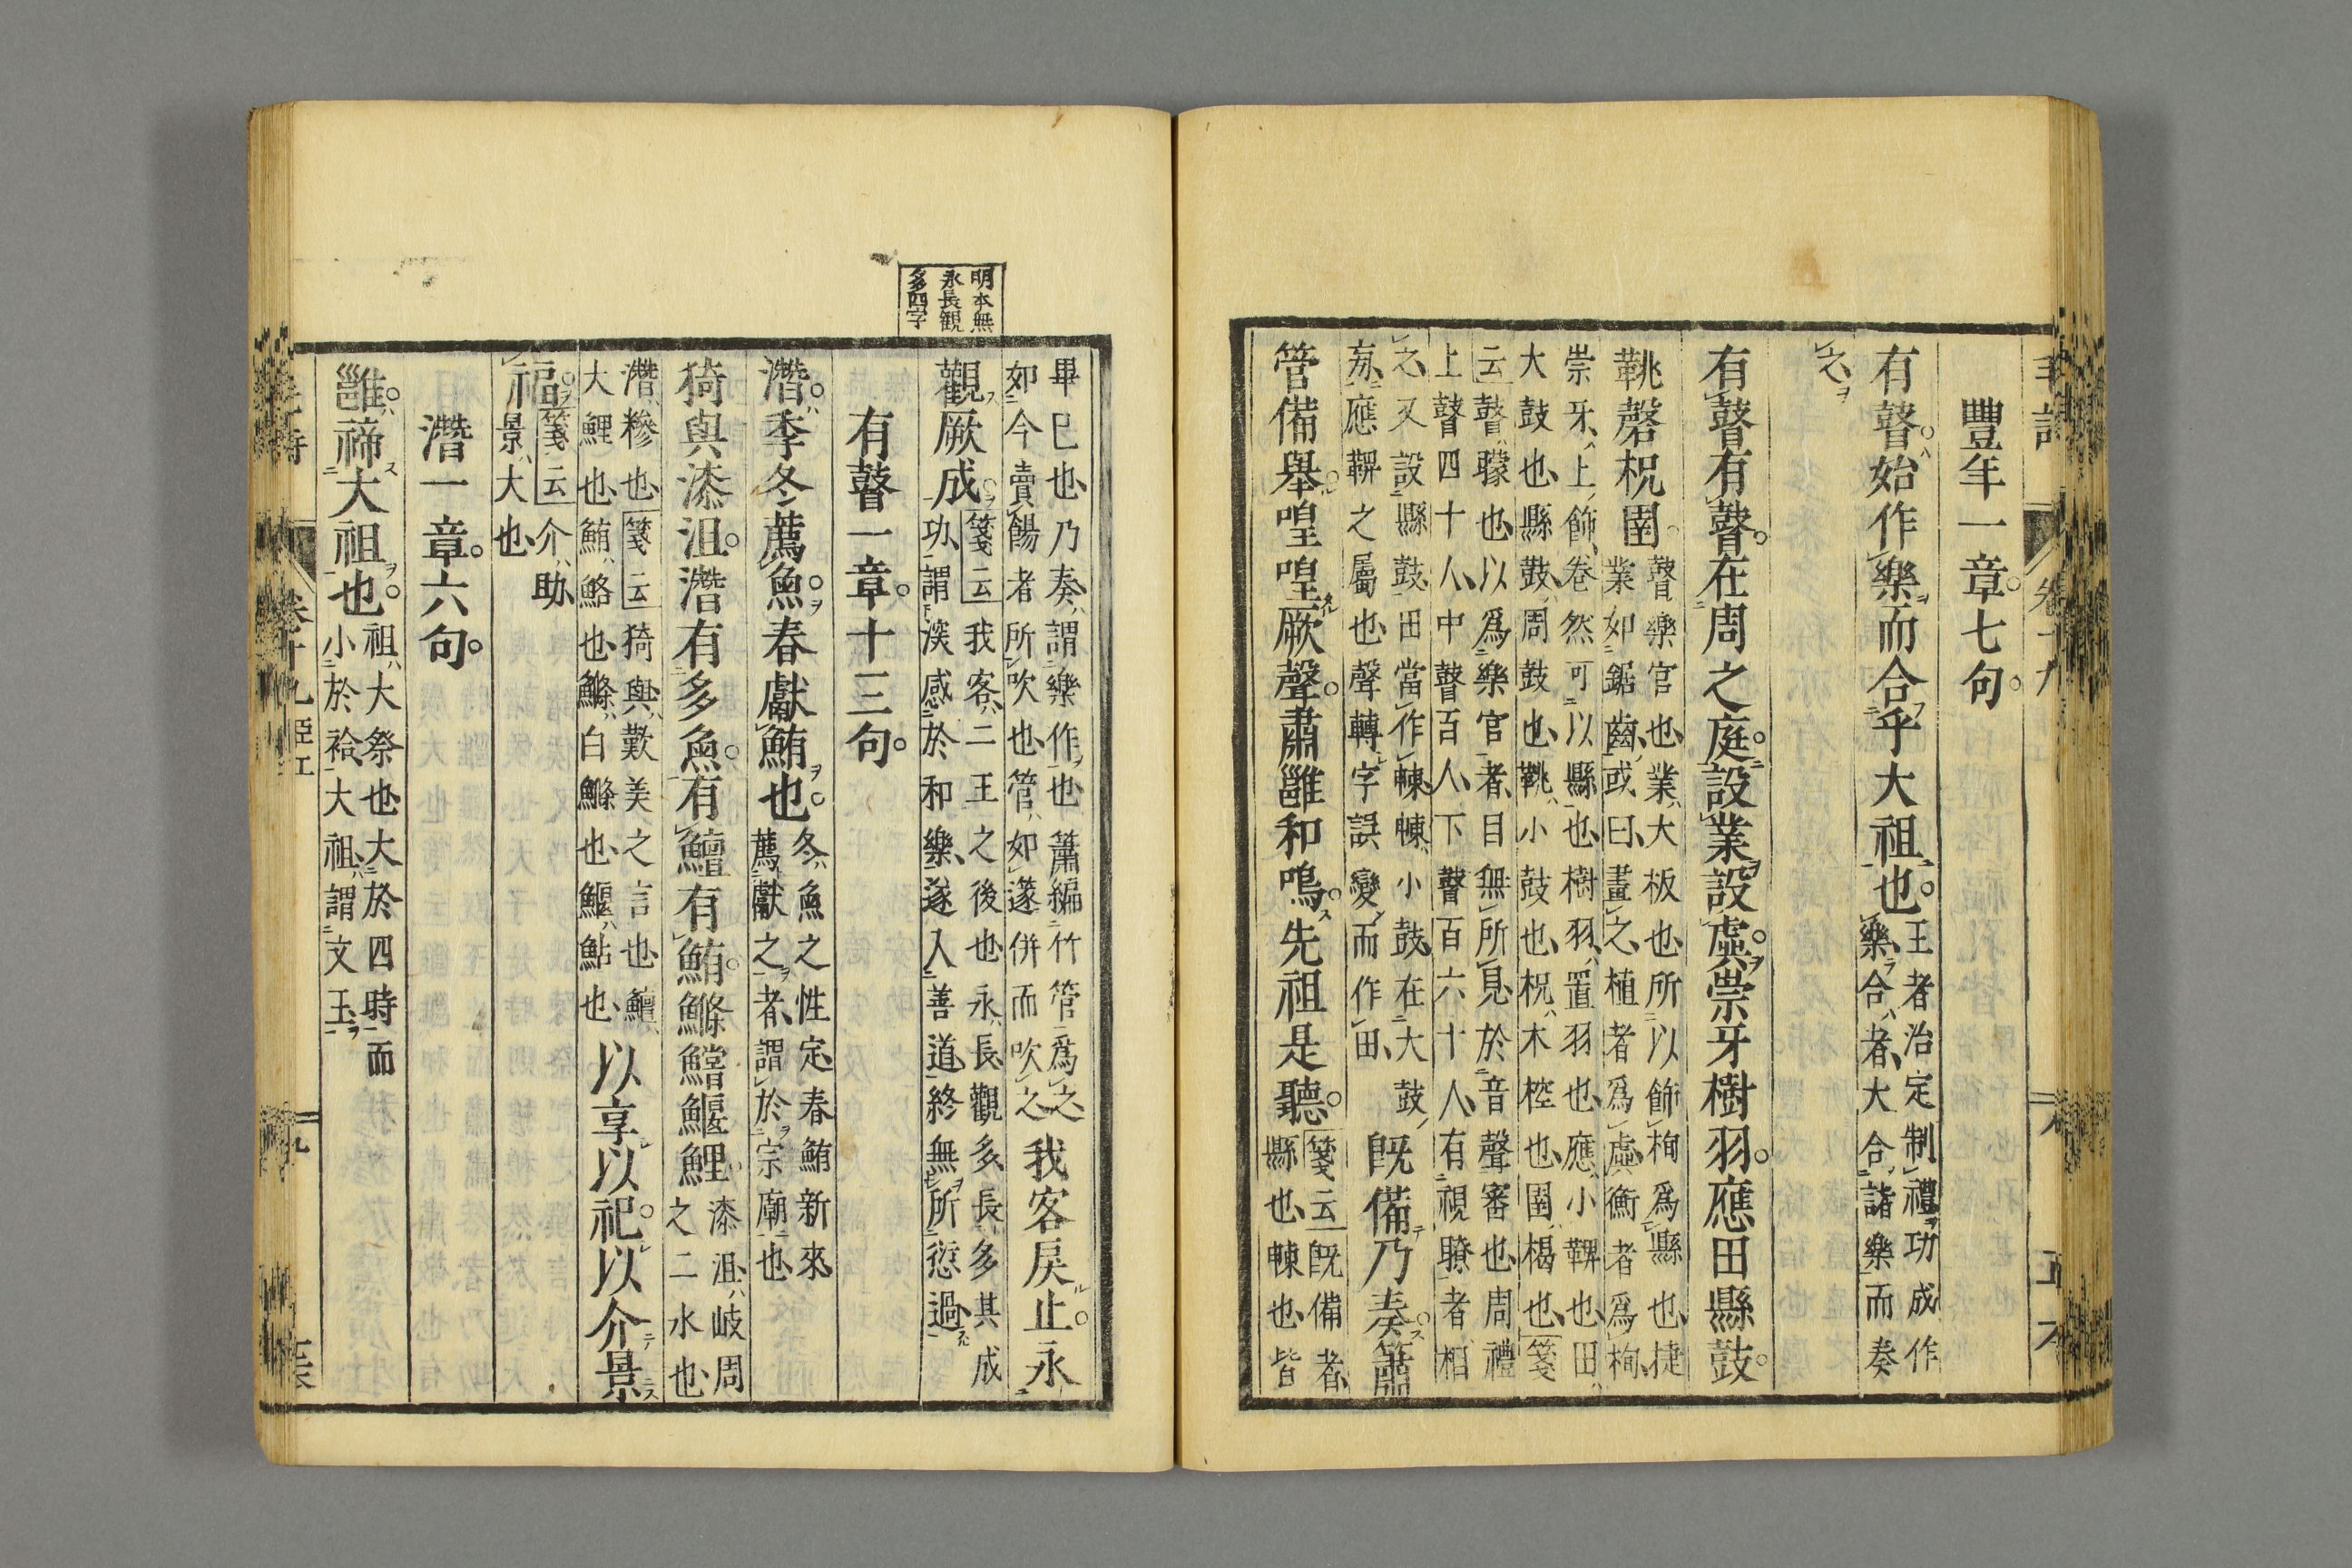 豐年一章七句
有瞽始作樂而合乎大祖也王者治定制禮功成作
樂合者大合諸樂而奏
之
有瞽有瞽在周之庭設業設虡崇牙樹羽應田縣鼓
鞉磬柷圉瞽樂官也業大板也所以飾栒爲縣也捷
業如鋸齒或曰畫之植者爲虡衡者爲栒
崇牙上飾卷然可以縣也樹羽置羽也應小鞞也田
大鼓也縣鼓周鼓也鞉小鼓也柷木椌也圉楬也箋
云瞽矇也以爲樂官者目無所見於音聲審也周禮
上瞽四十人中瞽百人下瞽百六十人有視瞭者相
之又設縣鼓田當作朄朄小鼓在大鼓
㫄應鞞之屬也聲轉字誤變而作田
既備乃奏簫
管備舉喤喤厥聲肅雝和鳴先祖是聽箋云既備者
縣也朄也皆
畢已也乃奏謂樂作也簫編竹管爲之
如今賣餳者所吹也管如篴併而吹之
我客戾止永
觀厥成箋云我客二王之後也永長觀多長多其成
功謂深感於和樂遂入善道終無所愆過
明本無
永長觀
多四字
有瞽一章十三句
潛季冬薦魚春獻鮪也冬魚之性定春鮪新來
薦獻之者謂於宗廟也
猗與漆沮潛有多魚有鱣有鮪鰷鱨鰋鯉漆沮岐周
之二水也
潛糝也箋云猗與歎美之言也鱣
大鯉也鮪鮥也鰷白鰷也鰋鮎也
以享以祀以介景
福箋云介助
景大也
潛一章六句
雝禘大祖也祖大祭也大於四時而
小於祫大祖謂文王